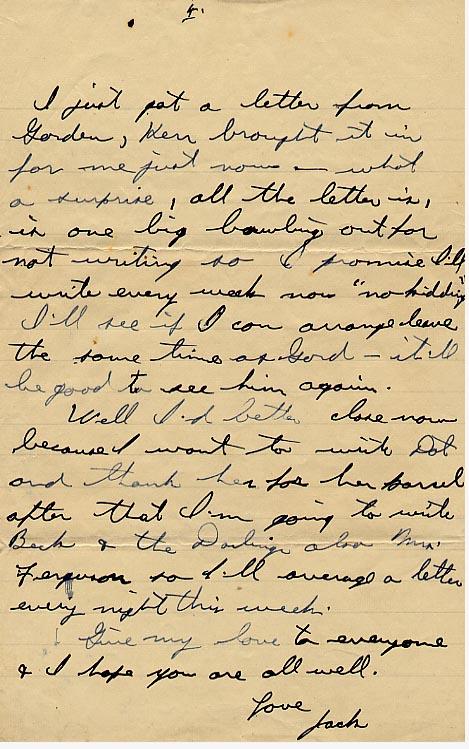 4.
I just got a letter from
Gordon, Kerr brought it in
for me just now - what
a surprise, all the letter is,
is one big bawling out for
not writing so I promise I'll
write every week now "no kidding"
I'll see if I can arrange leave
the same time as Gord - it'll
be good to see him again.
Well I'd better close now
because I want to write Dot
and thank her for her parcel
after that I'm going to write
& the Darlings also Mrs.
Ferguson so I'll average a letter
every night this week.
Give my love to everyone
& I hope you are all well.
Love
Jack